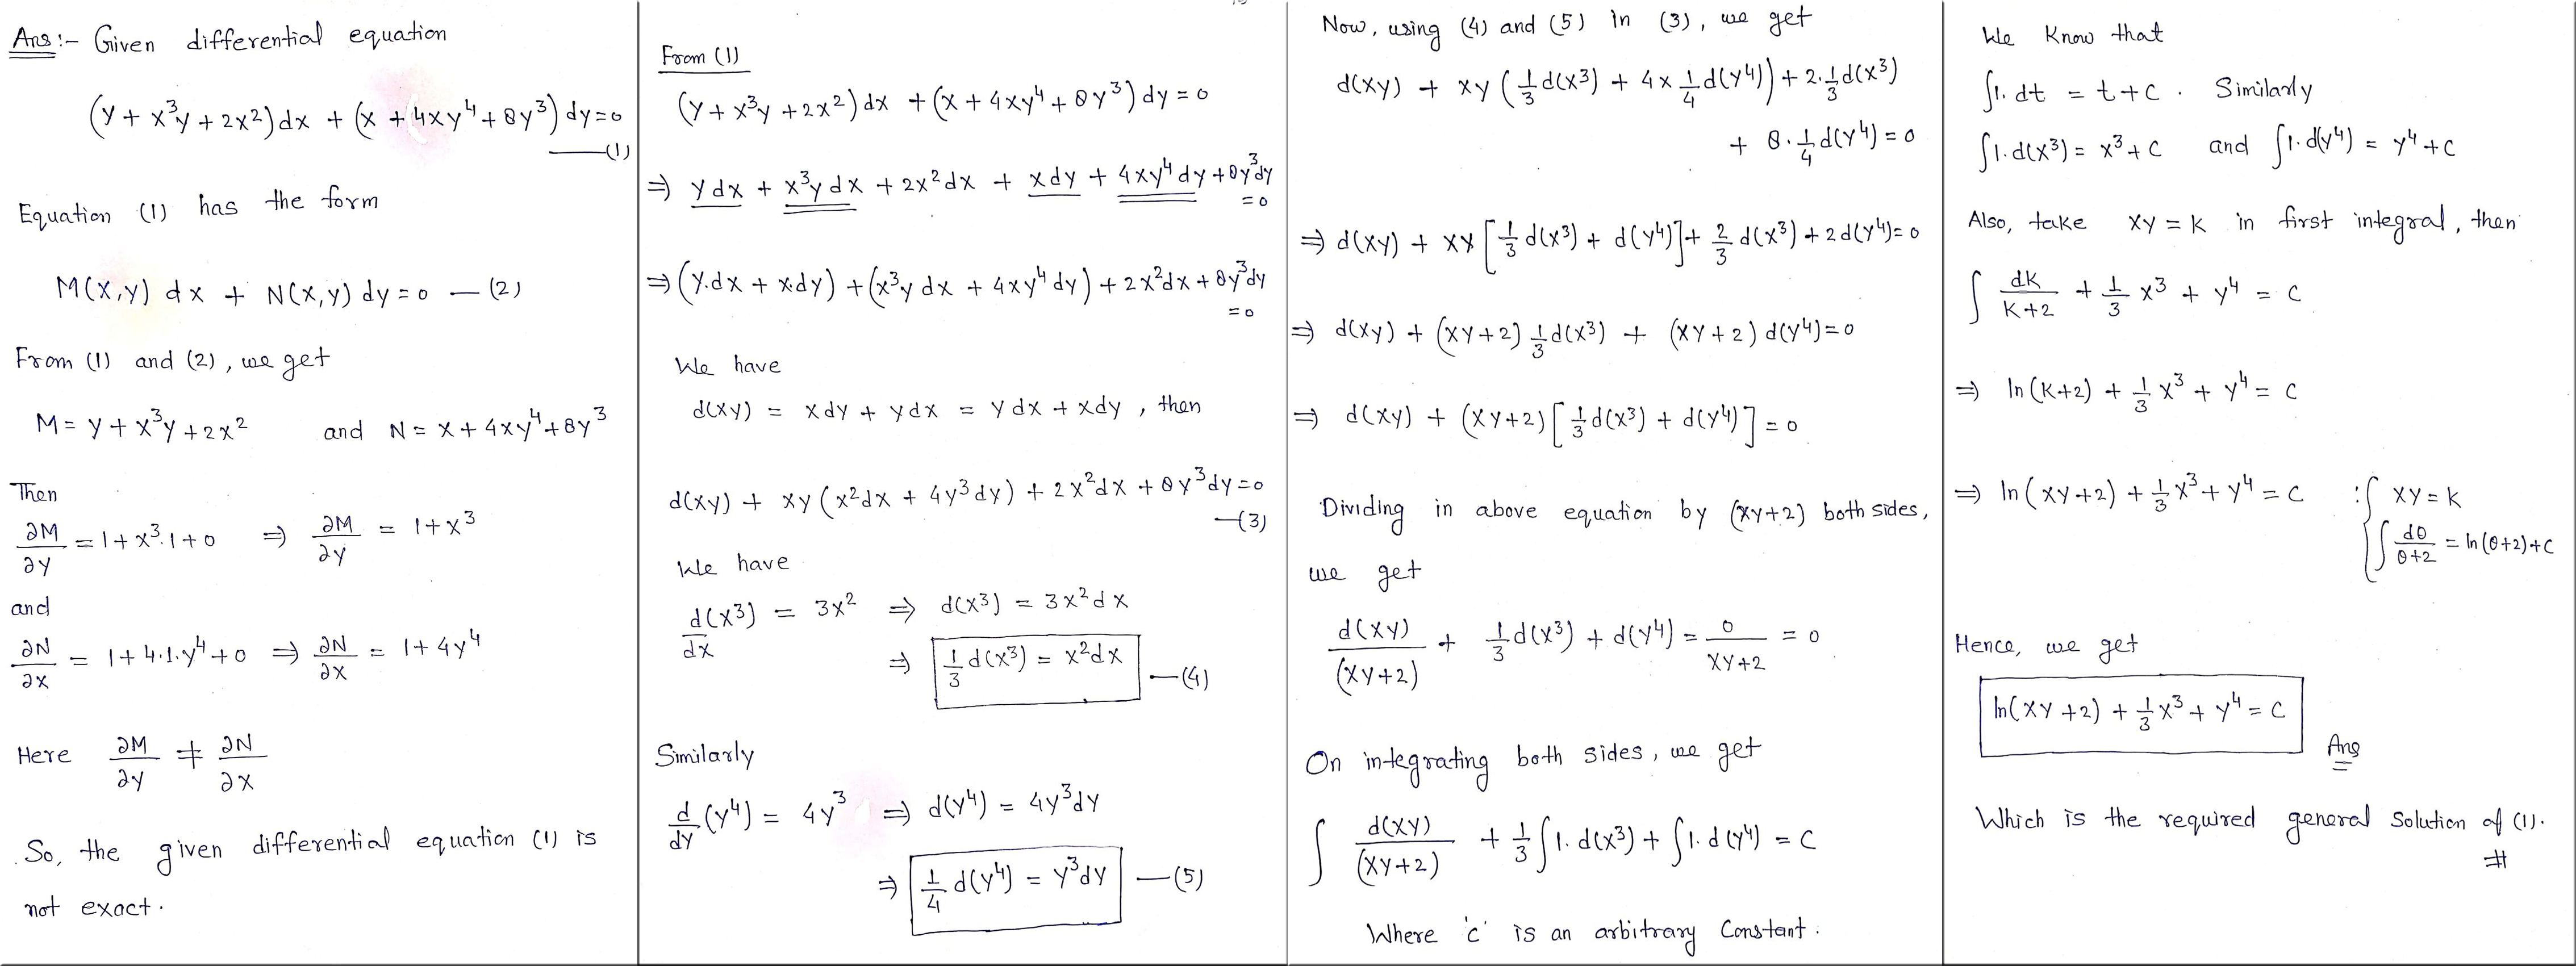 Ans :- Given differential equation
(y + x³y + 2x²) dx + (x + 4xy⁴ + 8y³) dy = 0
—(1)
Equation (1) has the form
M(x,y) dx + N(x,y) dy = 0 — (2)
From (1) and (2), we get
M = y + x³y + 2x² and N = x + 4xy⁴ + 8y³
Then
∂M/∂y = 1 + x³.1 + 0 ⇒ ∂M/∂y = 1 + x³
and
∂N/∂x = 1 + 4.1.y⁴ + 0 ⇒ ∂N/∂x = 1 + 4y⁴
Here ∂M/∂y ≠ ∂N/∂x
So, the given differential equation (1) is
not exact.
From (1)
(y + x³y + 2x²) dx + (x + 4xy⁴ + 8y³) dy = 0
⇒ y dx + x³y dx + 2x² dx + x dy + 4xy⁴ dy + 8y³ dy
= 0
⇒ (y.dx + x.dy) + (x³y dx + 4xy⁴ dy) + 2x² dx + 8y³ dy
= 0
We have
d(xy) = x dy + y dx = y dx + x dy , then
d(xy) + xy (x² dx + 4y³ dy) + 2x² dx + 8y³ dy = 0
—(3)
We have
d(x³)/dx = 3x² ⇒ d(x³) = 3x² dx
⇒ 1/3 d(x³) = x² dx —(4)
Similarly
d/dy (y⁴) = 4y³ ⇒ d(y⁴) = 4y³ dy
⇒ 1/4 d(y⁴) = y³ dy —(5)
Now, using (4) and (5) in (3), we get
d(xy) + xy (1/3 d(x³) + 4 x 1/4 d(y⁴)) + 2.1/3 d(x³)
+ 8.1/4 d(y⁴) = 0
⇒ d(xy) + xy [1/3 d(x³) + d(y⁴)] + 2/3 d(x³) + 2 d(y⁴) = 0
⇒ d(xy) + (xy+2) 1/3 d(x³) + (xy+2) d(y⁴) = 0
⇒ d(xy) + (xy+2) [1/3 d(x³) + d(y⁴)] = 0
Dividing in above equation by (xy+2) both sides,
we get
d(xy)/(xy+2) + 1/3 d(x³) + d(y⁴) = 0/xy+2 = 0
On integrating both sides, we get
∫ d(xy)/(xy+2) + 1/3 ∫1. d(x³) + ∫1. d(y⁴) = c
Where 'c' is an arbitrary Constant.
We Know that
∫1. dt = t + c . Similarly
∫1. d(x³) = x³ + c and ∫1. d(y⁴) = y⁴ + c
Also, take xy = k in first integral, then
∫ dk/k+2 + 1/3 x³ + y⁴ = c
⇒ ln(k+2) + 1/3 x³ + y⁴ = c
⇒ ln(xy+2) + 1/3 x³ + y⁴ = c : { xy = k
∫ dθ/θ+2 = ln(θ+2) + c
Hence, we get
ln(xy+2) + 1/3 x³ + y⁴ = c
Ans
Which is the required general solution of (1).
#